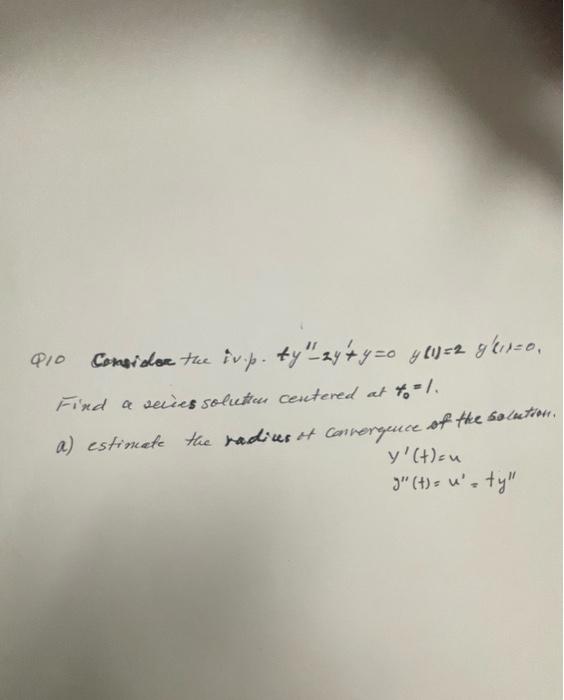 Q10 Consider the i.v.p. ty''-2y'+y=0 y(1)=2 y'(1)=0.
Find a series solution centered at t₀=1.
a) estimate the radius of convergence of the solution.
y'(t)=u
y''(t)=u'=ty''